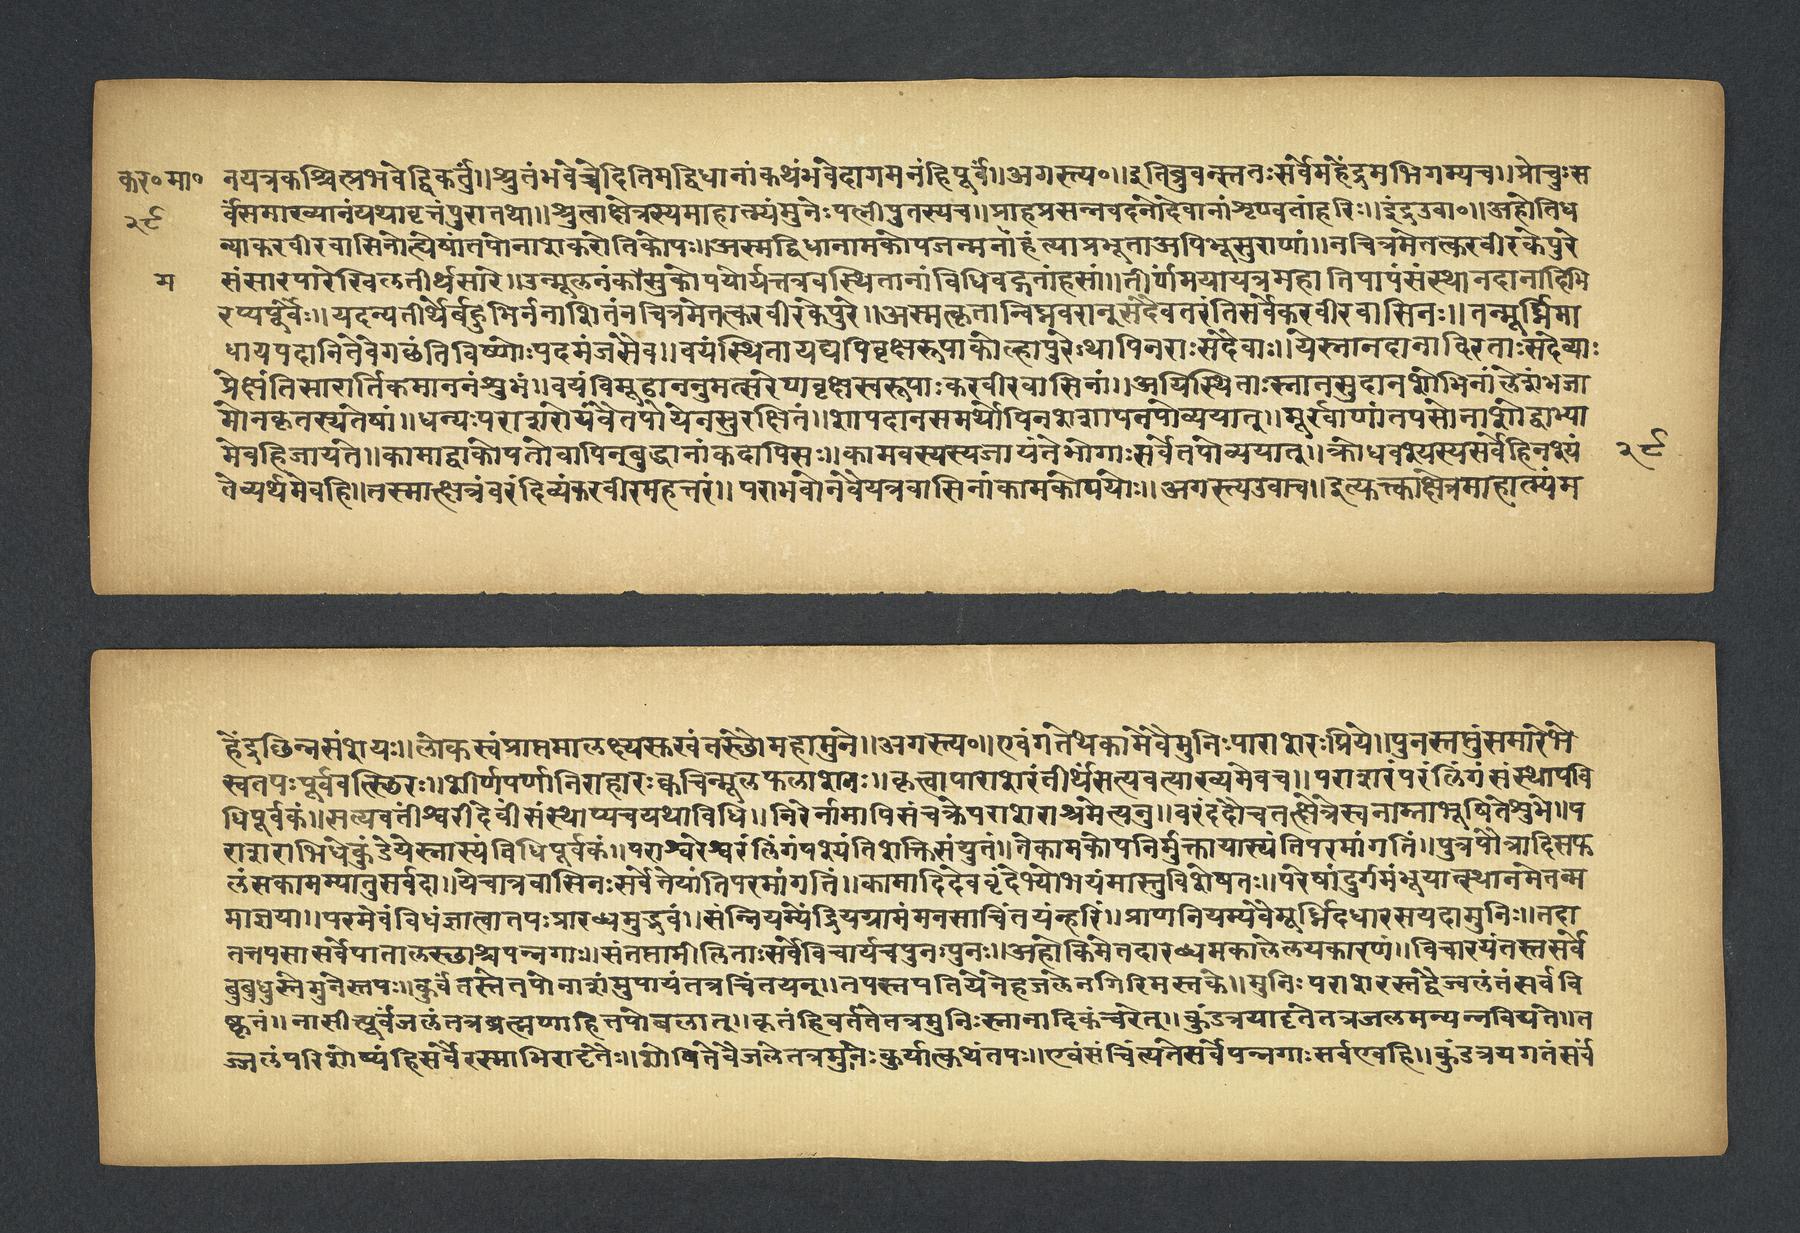 कर॰मा॰
२९
म
नयत्रकश्चित्प्रभवेद्विकर्तुं।।श्रुतंभवेच्चेदितिमद्विधानांकथंभवेदागमनंहिपूर्वं।।अगस्त्य॰।।इतिब्रुवन्स्ततःसर्वेमहेंद्रमभिगम्यच।।प्रोचुःस
र्वंसमाख्यानंयथावृत्तंपुरातथा।।श्रुत्वाक्षेत्रस्यमाहात्म्यंमुनेःपत्नीयुतस्यच।।प्राहप्रसन्नवदनोदेवानांशृण्वतांहरिः।।इंद्रउवा॰।।अहोतिध
न्याकरवीरवासिनोत्येषांतपोनाशकरोतिकोपः।।अस्मद्विधानामकोपजन्मनांहंत्याप्रभूताअपिभूसुराणां।।नचित्रमेतत्करवीरकेपुरे
संसारपारेखिलतीर्थसारे।।उन्मूलनंकौसुकोपयोर्यत्तत्रवस्थितानांविधिवद्गतांहसां।।तीर्णामयायत्रमहातिपापंसंस्थानदानादिभि
रप्यपूर्वैः।।यदन्यतीर्थैर्बहुभिर्ननाशितंनचित्रमेतत्करवीरकेपुरे।।अस्मत्कृतान्विघ्नवरानुसंदैवतरंतिसर्वेकरवीरवासिनः।।तन्मूर्ध्निमा
धायपदानितेवैगछंतिविष्णोःपदमंजसैव।।वयंस्थितायद्यपिवृक्षरूपाकोल्हापुरेथापिनराःसदैवाः।।येस्नानदानाविरताःसदैव्याः
प्रेक्षंतिसारार्तिकमाननंशुभं।।वयंविमूढाननुमत्सरेणवृक्षस्वरूपाःकरवीरवासिनां।।अपिस्थिताःस्नानसुदानशोभिनांलेशंभजा
मोनकृतस्यतेषां।।धन्यःपराशरोयंवैतपोयेनसुरक्षितं।।शापदानसमर्थोपिनशशापतपोव्ययात्।।मूर्खाणांतपसोनाशोद्वाभ्या
मेवहिजायते।।कामाद्वाकोपतोवापिनबुद्धानांकदापिसः।।कामवस्यस्यजायंतेभोगाःसर्वेतपोव्ययात्।।क्रोधवश्यस्यसर्वेहिनश्यं
तेव्यर्थमेवहि।।तस्मात्क्षेत्रंवरंदिव्यंकरवीरमहत्तरं।।पराभवोनवैयत्रवासिनांकामकोपयोः।।अगस्त्यउवाच।।इत्युक्त्काक्षेत्रमाहात्म्यंम
२९
हेंद्रछिन्नसंशयः।।लोकस्वंप्राप्तमालक्ष्यसुखंतस्छोमहामुने।।अगस्त्य॰।।एवंगतेथकामेवैमुनिःपाराशरःप्रिये।।पुनस्तप्तुंसमारेभे
स्वतपःपूर्ववत्स्छिरः।।शीर्णपर्णानिराहारःक्वचिन्मूलफलाशनः।।कृत्वापाराशरंतीर्थंसत्यवत्याख्यमेवच।।पराशरंपरंलिंगंसंस्थापवि
धिपूर्वकं।।सत्यवतीश्वरींदेवींसंस्थोप्यचयथाविधि।।निरेर्नामापिसंचक्रेपराशराश्रमेत्यनु।।वरंददौचतत्क्षेत्रेस्वनाम्नाभूषितेशुभे।।प
राशराभिधेकुंडेयेस्नास्यंविधिपूर्वकं।।पराश्वरेश्वरंलिंगंपश्यंतिशक्तिसंयुतं।।तेकामकोपनिर्मुक्तायास्यंतिपरमांगतिं।।पुत्रपौत्रादिसफ
लंसकाममाप्यातुसर्वदा।।येचात्रवासिनःसर्वेतेयांतिपरमांगतिं।।कामादिदेववृंदेभ्योभयंमास्तुविशेषतः।।परेषांदुर्गमंभूयात्स्थानमेतन्म
माज्ञया।।परमेवंविधंज्ञात्वातपःप्रारब्धमुद्भवं।।संन्नियम्येंद्रियग्रामंमनसाचिंतयंन्हरिं।।प्राणनियम्यवैमूर्ध्निदधारसयदामुनिः।।तदा
तत्तपसासर्वेपातालस्छाश्चपन्नगाः।।संतप्तामीलिताःसर्वेविचार्यचपुनःपुनः।।अहोकिमेतदारब्धमकालेलयकारणं।।विचारयंतस्तसर्वे
बुबुधुस्तेमुनेस्तपः।।कुर्वंतस्तेतपोनाशंमुपायंतत्रचिंतयन्।।तपस्तपतियेनेहजलेनगिरिमस्तके।।मुनिःपराशरस्तद्वैज्वलंतंसर्ववि
ष्कृतं।।नासीत्पूर्वंजलंतत्रब्रह्मणाहितपोबलात्।।कृतंहिवर्ततेतत्रमुनिःस्नानादिकंच्चरेत्।।कुंडत्रयादृतेतत्रजलमन्यन्नविद्यते।।त
ज्जलंपरिशोष्यंहिसर्वैरस्माभिरादृतैः।।शोषितेवैजलेतत्रमुनिःकुर्यात्कथंतपः।।एवंसंचिंत्यतेसर्वेपन्नगाःसर्वएवहि।।कुंडत्रयगतंसर्वं